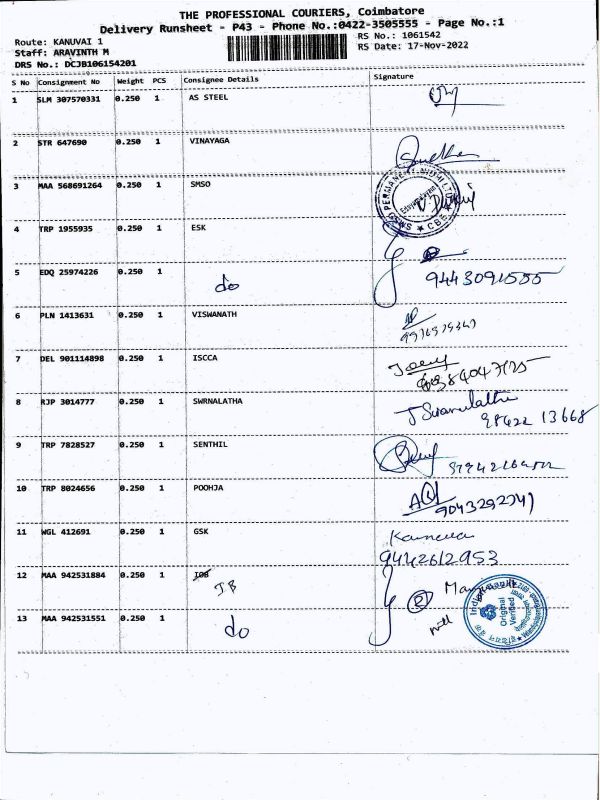 THE PROFESSIONAL COURIERS, Coimbatore
Delivery Runsheet - P43 - Phone No.:0422-3505555 - Page No.:1
Route: KANUVAI 1
RS No.: 1061542
Staff: ARAVINTH M
RS Date: 17-Nov-2022
DRS No.: DCJB106154201
S No Consignment No Weight PCS Consignee Details Signature
1 SLM 307570331 0.250 1 AS STEEL
2 STR 647690 0.250 1 VINAYAGA
3 MAA 568691264 0.250 1 SMSO
4 TRP 1955935 0.250 1 ESK
5 EDQ 25974226 0.250 1 do
6 PLN 1413631 0.250 1 VISWANATH
7 DEL 901114898 0.250 1 ISCCA
8 RJP 3014777 0.250 1 SWRNALATHA J Swarnalatha
98422 13668
9 TRP 7828527 0.250 1 SENTHIL
10 TRP 8024656 0.250 1 POOHJA
11 WGL 412691 0.250 1 GSK
9442612953
12 MAA 942531884 0.250 1 IOB IB
13 MAA 942531551 0.250 1 do
Original
Verified